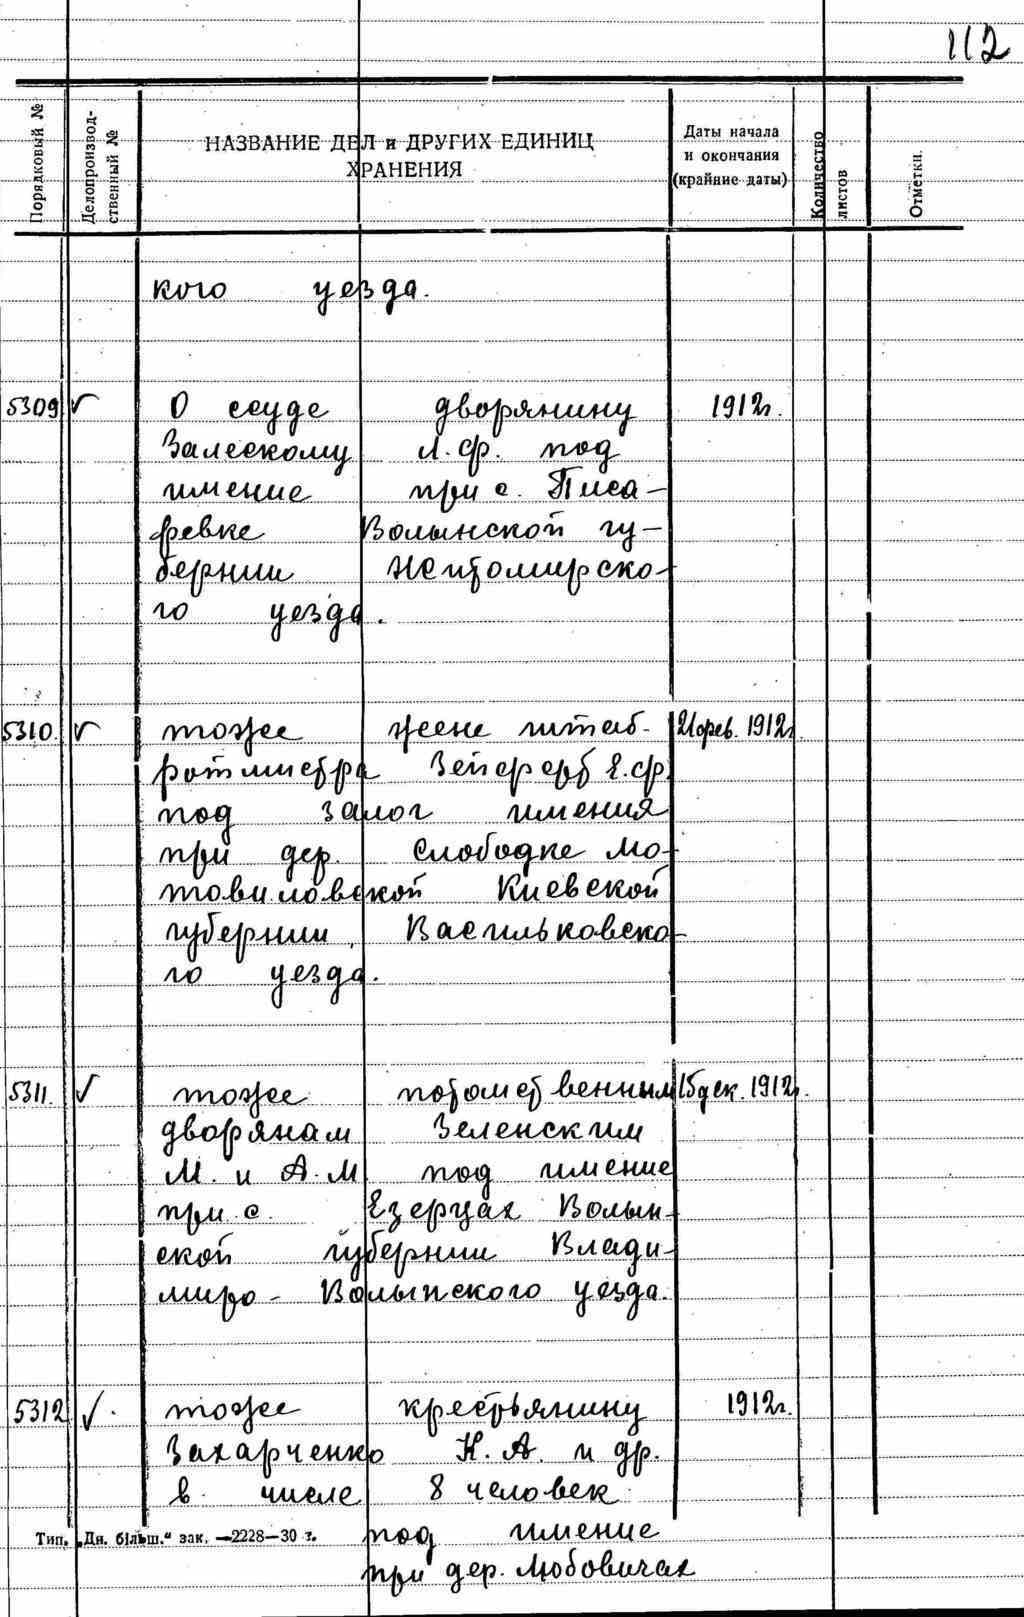 112
Порядковый №
Делопроизвод-
ственный №
НАЗВАНИЕ ДЕЛ и ДРУГИХ ЕДИНИЦ
ХРАНЕНИЯ
Даты начала
и окончания
(крайние даты)
Количество
листов
Отметки.
кого уезда.
5309 ✓ О ссуде дворянину 1912г.
Залескому Л.Ф. под
имение при с. Писа-
ревке Волынской гу-
бернии Житомирско-
го уезда.
5310. ✓ тоже жене штаб- 21фев. 1912г.
ротмистра Зейферт Е.Ф.
под залог имения
при дер. Слободке Мо-
товиловской Киевской
губернии, Васильковско-
го уезда.
5311. ✓ тоже потомственным 15дек. 1912г.
дворянам Зеленским
М. и А.М. под имение
при с. Езерцах Волын-
ской губернии Влади-
миро-Волынского уезда.
5312 ✓ тоже крестьянину 1912г.
Захарченко К.А. и др.
в числе 8 человек
Тип. „Дн. більш." зак. —2228—30 г. под имение
при дер. Любовичах